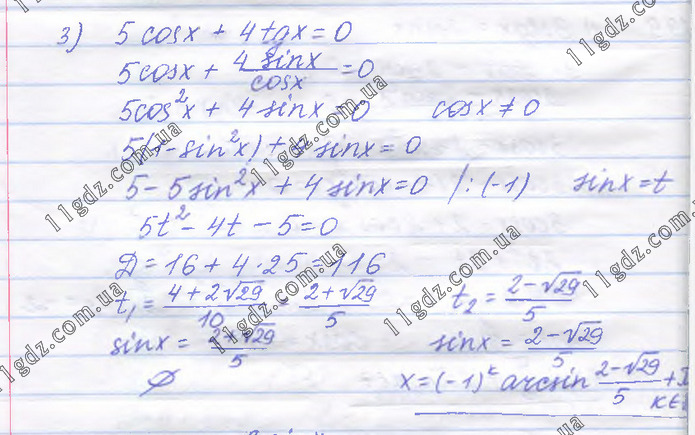 3) 5 cosx + 4 tgx = 0
5cosx + 4 sinx / cosx = 0
5cos²x + 4 sinx = 0 cosx ≠ 0
5(1-sin²x) + 4 sinx = 0
5 - 5sin²x + 4 sinx = 0 /:(-1) sinx = t
5t² - 4t - 5 = 0
Д = 16 + 4·25 = 116
t₁ = (4 + 2√29)/10 = (2 + √29)/5 t₂ = (2 - √29)/5
sinx = (2 + √29)/5 sinx = (2 - √29)/5
∅ x = (-1)ᵏ arcsin (2 - √29)/5 +
11gdz.com.ua
11gdz.com.ua
11gdz.com.ua
11gdz.com.ua
11gdz.com.ua
11gdz.com.ua
11gdz.com.ua
11gdz.com.ua